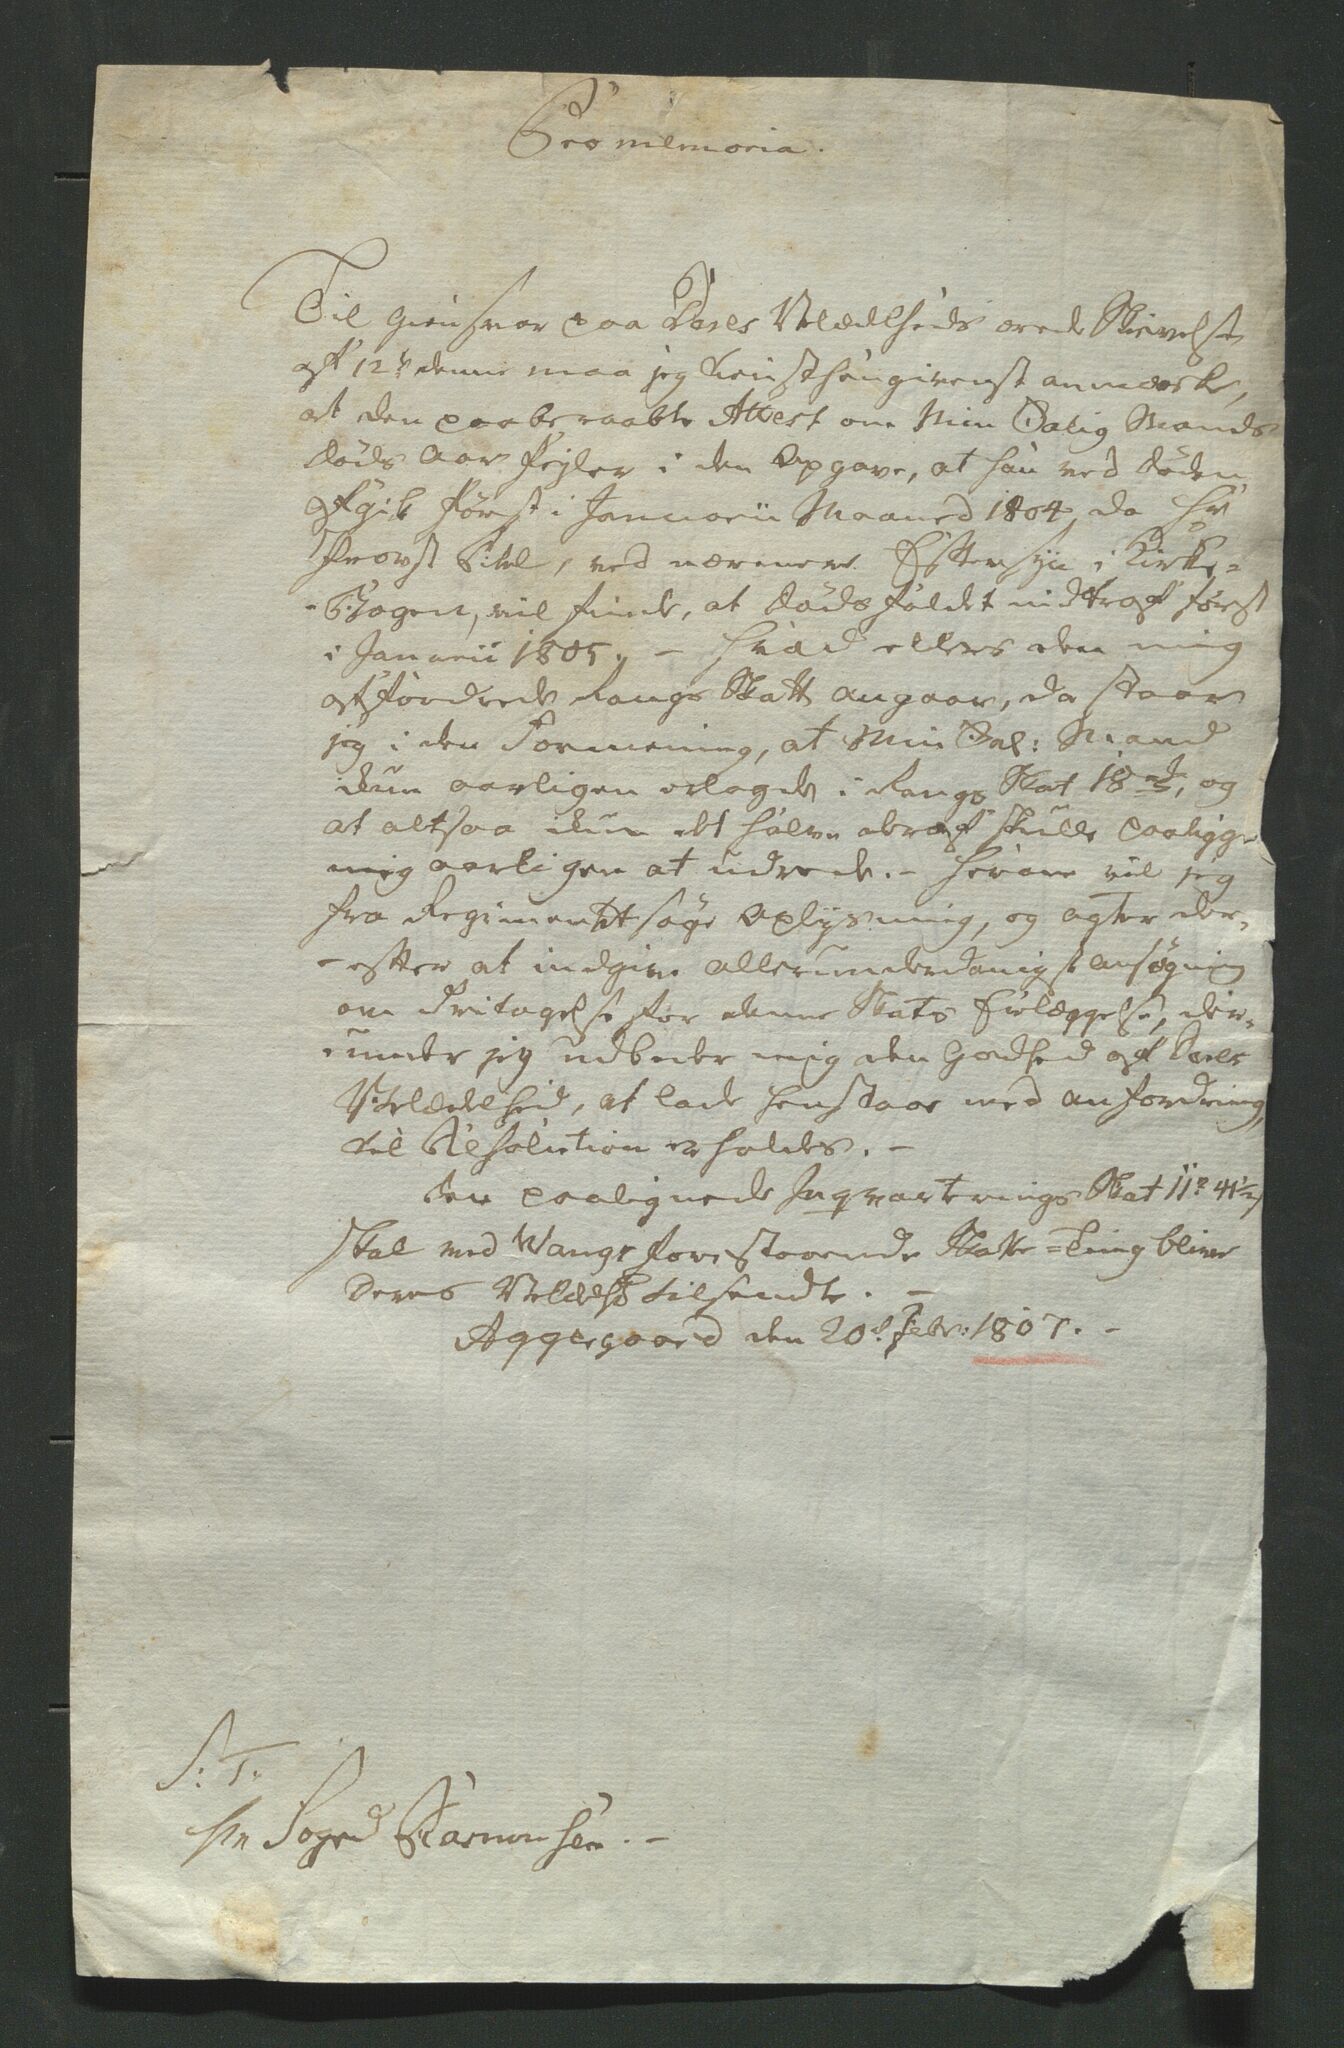 Pro memoria.
Til Giensvar paa Deres Velædelheds ærede Skrivelse
af 12te denne maa jeg tiensthengivenst anmærke,
at den paaberaabte Attest om Min Salig Mands
Døds Aar fejler i den Opgave, at han ved døden
afgik først i Januarii Maaned 1804, da Hr
Provst Pihl, ved nærmere Eftersyn i Kirke=
-Bogen, vil finde, at dødsfaldet indtraf først
i Januarii 1805. – Hvad ellers den mig
affordrede Rangs Skatt angaar, da staar
jeg i den Formening, at Min Sal: Mand
kun aarligen erlagde i Rangs Skat 18 rd, og
at altsaa kun det halve deraf skulle paaligge
mig aarligen at udrede. – Herom vil jeg
fra Regimentet søge Oplysning, og agter der-
-efter at indgive allerunderdanigst ansøgning
om Fritagelse for denne Skats Erlæggelse, hvor-
under jeg udbeder mig den Godhed af Deres
Velædelhed, at lade henstaae med anfordring,
til Resolution erholdes. –
Den paalignede Inqvarterings Skat 11 r 41½ s
skal med Wangs forestaaende Skatte=Ting blive
Deres Velædelhd tilsendte. –
Aggersgaard den 20d Febr: 1807. –
S: T.
Hr Foged Rasmussen. –